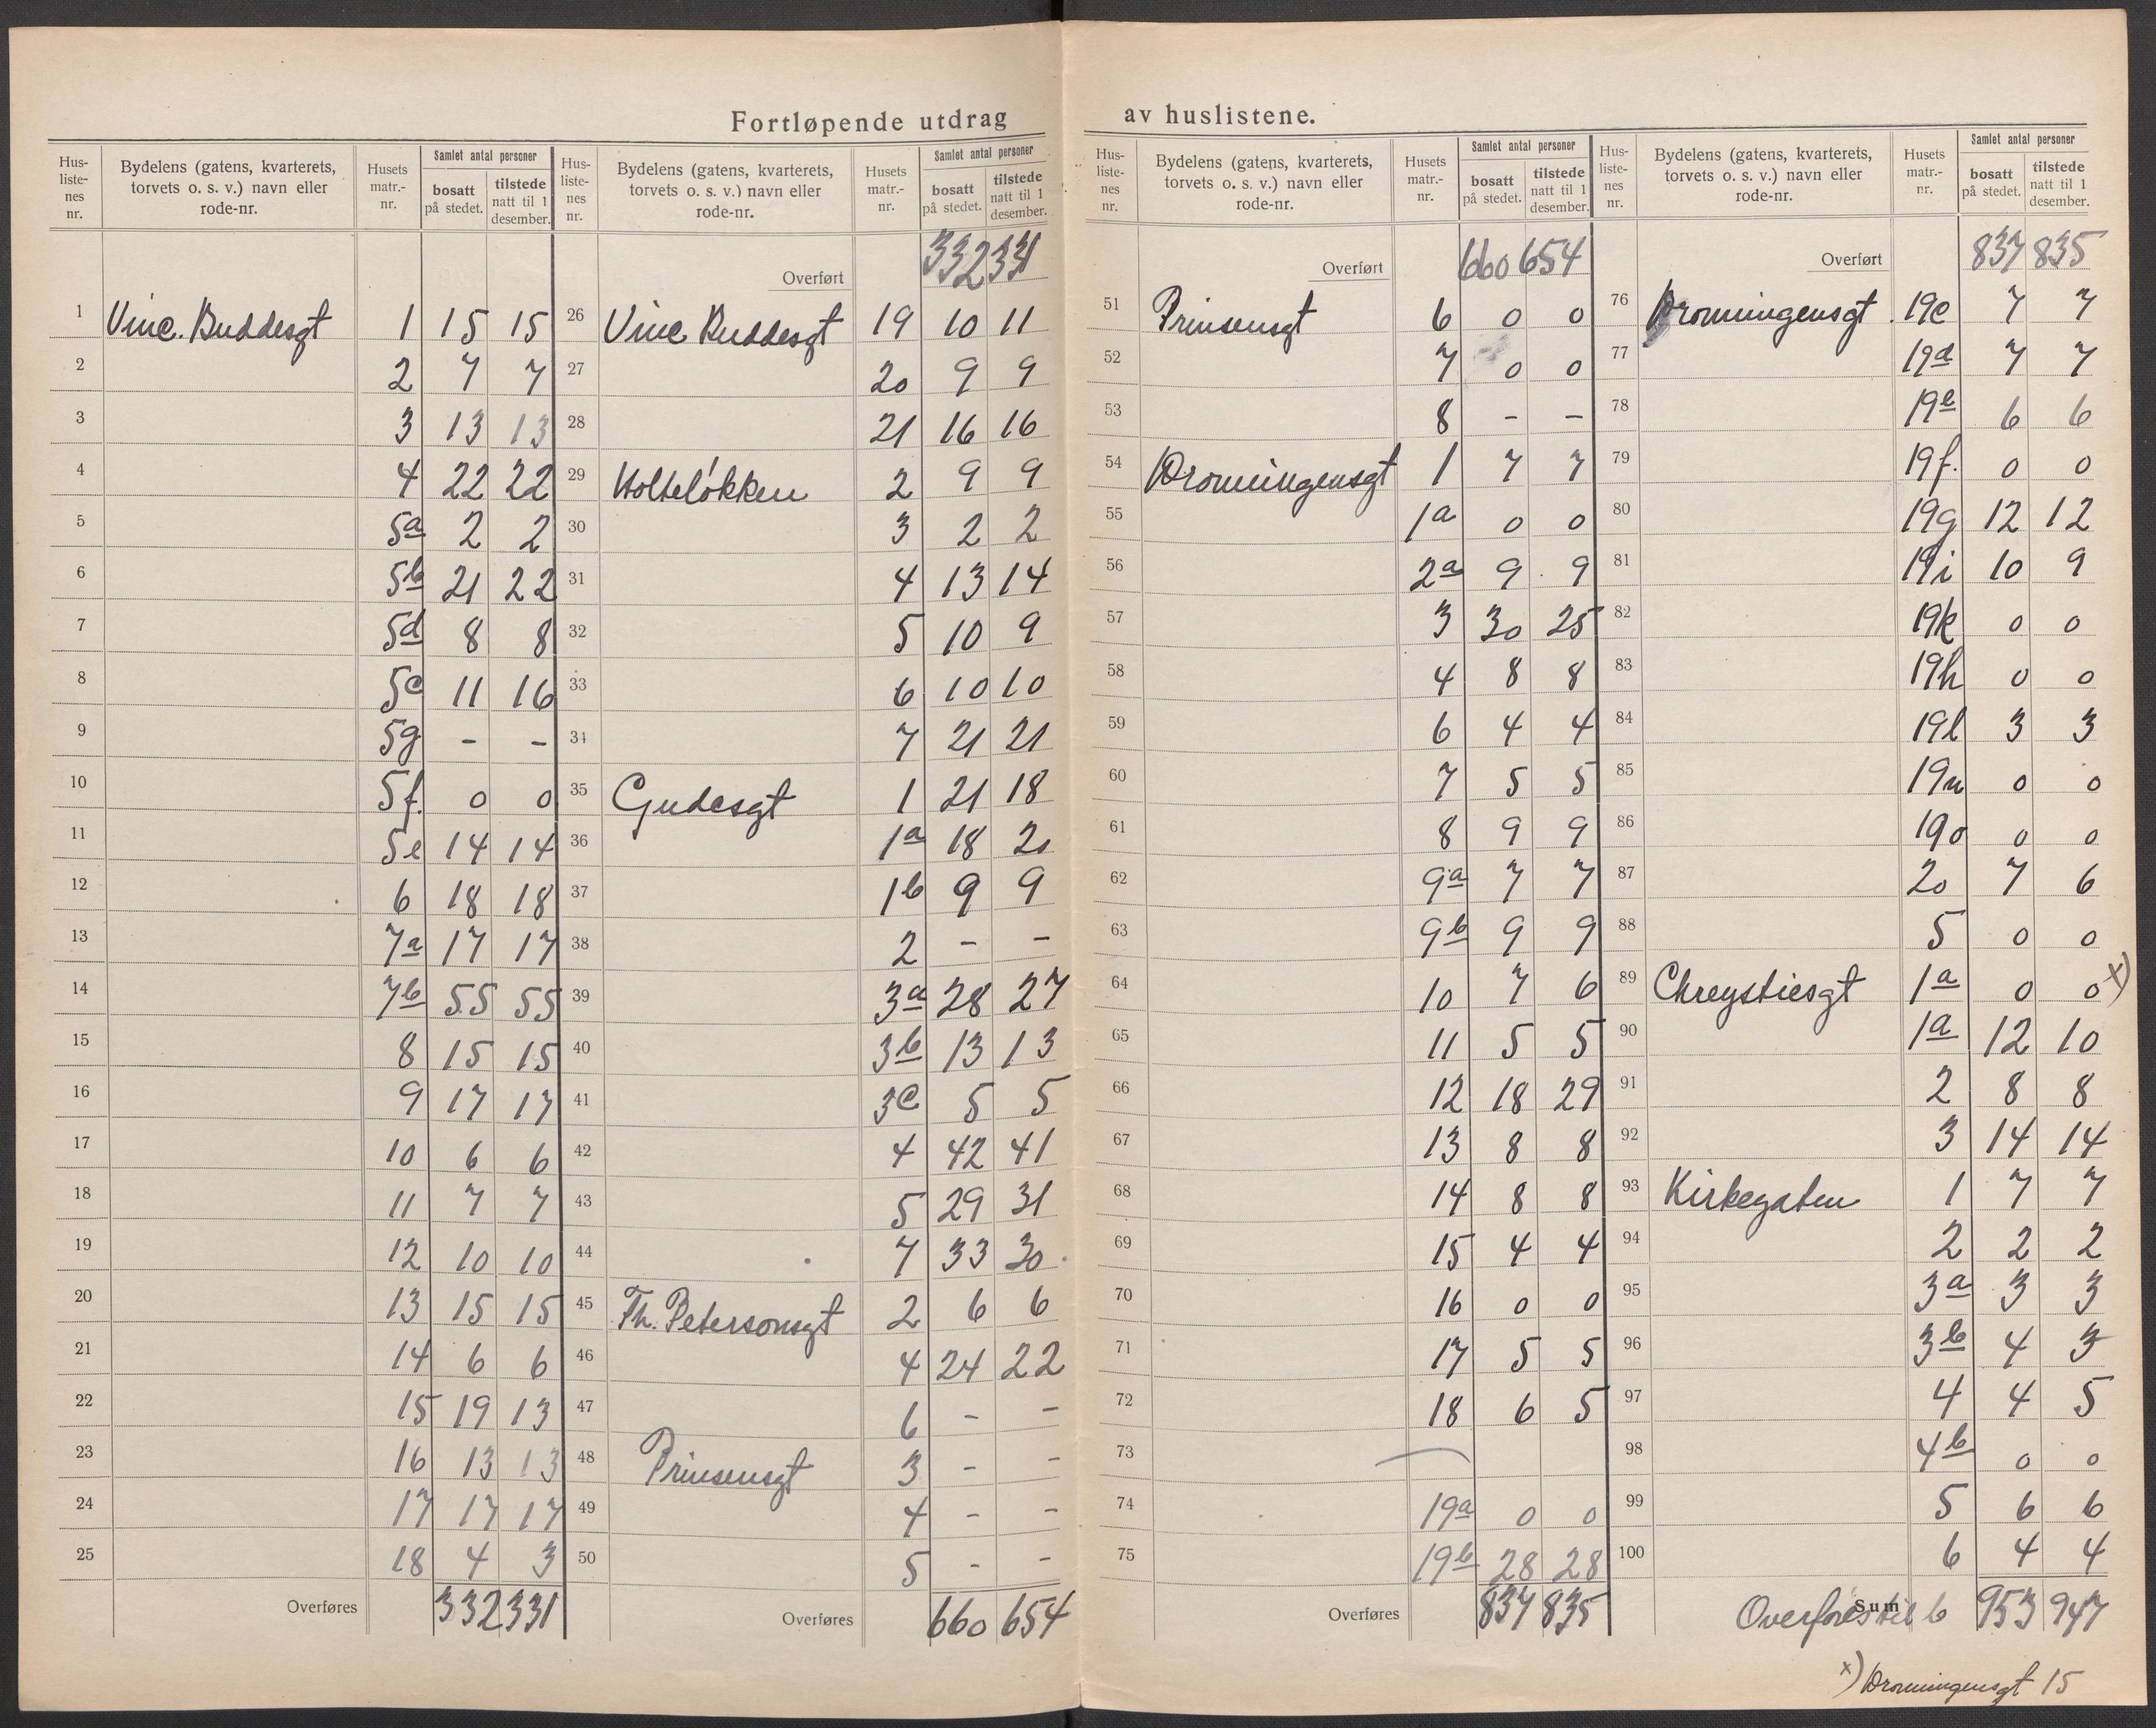 Fortløpende utdrag av huslistene.
Hus-listenes nr. | Bydelens (gatens, kvarterets, torvets o. s. v.) navn eller rode-nr. | Husets matr.-nr. | Samlet antal personer bosatt på stedet. | tilstede natt til 1 desember.
1 Vinc. Buddesgt 1 15 15
2 2 7 7
3 3 13 13
4 4 22 22
5 5a 2 2
6 5b 21 22
7 5d 8 8
8 5c 11 16
9 5g - -
10 5f. 0 0
11 5e 14 14
12 6 18 18
13 7a 17 17
14 7b 55 55
15 8 15 15
16 9 17 17
17 10 6 6
18 11 7 7
19 12 10 10
20 13 15 15
21 14 6 6
22 15 19 13
23 16 13 13
24 17 17 17
25 18 4 3
Overføres 332 331
Hus-listenes nr. | Bydelens (gatens, kvarterets, torvets o. s. v.) navn eller rode-nr. | Husets matr.-nr. | Samlet antal personer bosatt på stedet. | tilstede natt til 1 desember.
Overført 332 331
26 Vinc Buddesgt 19 10 11
27 20 9 9
28 21 16 16
29 Holteløkken 2 9 9
30 3 2 2
31 4 13 14
32 5 10 9
33 6 10 10
34 7 21 21
35 Gudesgt 1 21 18
36 1a 18 20
37 1b 9 9
38 2 - -
39 3a 28 27
40 3b 13 13
41 3c 5 5
42 4 42 41
43 5 29 31
44 7 33 30
45 Th. Petersonsgt 2 6 6
46 4 24 22
47 6 - -
48 Prinsensgt 3 - -
49 4 - -
50 5 - -
Overføres 660 654
Hus-listenes nr. | Bydelens (gatens, kvarterets, torvets o. s. v.) navn eller rode-nr. | Husets matr.-nr. | Samlet antal personer bosatt på stedet. | tilstede natt til 1 desember.
Overført 660 654
51 Prinsensgt 6 0 0
52 7 0 0
53 8 - -
54 Dronningensgt 1 7 7
55 1a 0 0
56 2a 9 9
57 3 30 25
58 4 8 8
59 6 4 4
60 7 5 5
61 8 9 9
62 9a 7 7
63 9b 9 9
64 10 7 6
65 11 5 5
66 12 18 29
67 13 8 8
68 14 8 8
69 15 4 4
70 16 0 0
71 17 5 5
72 18 6 5
73
74 19a 0 0
75 19b 28 28
Overføres 837 835
Hus-listenes nr. | Bydelens (gatens, kvarterets, torvets o. s. v.) navn eller rode-nr. | Husets matr.-nr. | Samlet antal personer bosatt på stedet. | tilstede natt til 1 desember.
Overført 837 835
76 Dronningensgt. 19c 7 7
77 19d 7 7
78 19e 6 6
79 19f. 0 0
80 19g 12 12
81 19i 10 9
82 19k 0 0
83 19h 0 0
84 19l 3 3
85 19n 0 0
86 19o 0 0
87 20 7 6
88 5 0 0
89 Chrystiesgt 1a 0 0 x)
90 1a 12 10
91 2 8 8
92 3 14 14
93 Kirkegaten 1 7 7
94 2 2 2
95 3a 3 3
96 3b 4 3
97 4 4 5
98 4b 0 0
99 5 6 6
100 6 4 4
Sum Overføres til 6 953 947
x) Dronningensgt 15